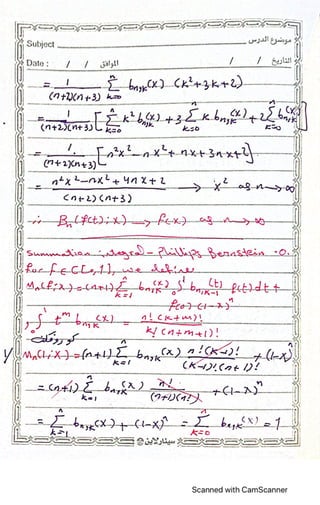 Subject موضوع الدرس
Date : / / الموافق / / التاريخ
= 1/((n+2)(n+3)) Σ_{k=0}^{n} b_{n,k}(x) (k²+3k+2)
= 1/((n+2)(n+3)) [Σ_{k=0}^{n} k² b_{n,k}(x) + 3 Σ_{k=0}^{n} k b_{n,k}(x) + 2 Σ_{k=0}^{n} b_{n,k}(x)]
= 1/((n+2)(n+3)) [n²x² - nx² + nx + 3nx + 2]
= (n²x² - nx² + 4nx + 2)/((n+2)(n+3)) → x² as n → ∞
∴ B_n(f(t);x) → f(x) as n → ∞
Summation-integral-Phillips Bernstein-O.
for f ∈ C[0,1], we define
M_n(f;x) = (n+1) Σ_{k=1}^{n} b_{n,k}(x) ∫_0^1 b_{n,k-1}(t) f(t) dt +
f(0) (1-x)^n
∫_0^1 t^m b_{n,k}(x) = n! (k+m)! / k! (n+m+1)!
M_n(1;x) = (n+1) Σ_{k=1}^{n} b_{n,k}(x) n! (k-1)! / (k-1)! (n+1)! + (1-x)^n
= (n+1) Σ_{k=1}^{n} b_{n,k}(x) n! / (n+1)(n!) + (1-x)^n
= Σ_{k=1}^{n} b_{n,k}(x) + (1-x)^n = Σ_{k=0}^{n} b_{n,k}(x) = 1
سينارلاين
Scanned with CamScanner